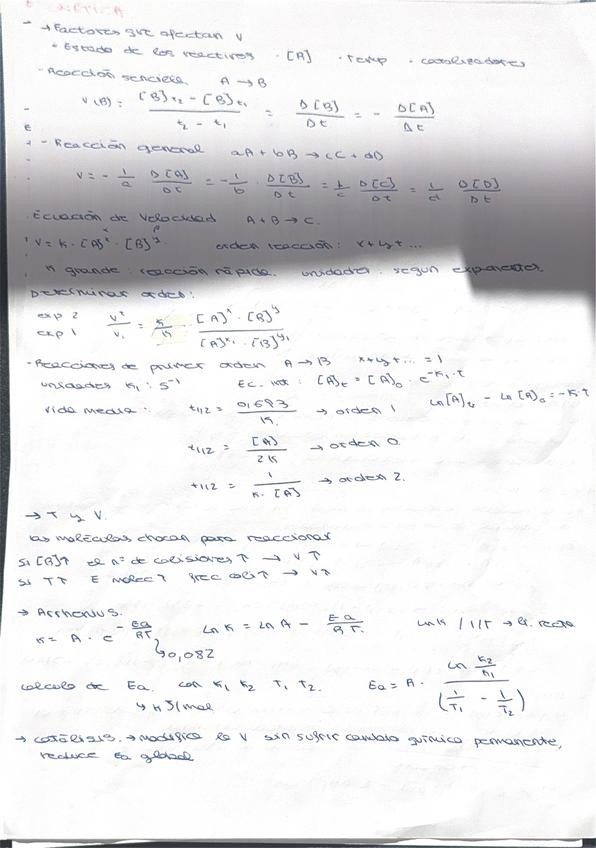 CINÉTICA
→ Factores que afectan V
• Estado de los reactivos · [A] · Temp · catalizadores
- Reacción sencilla A → B
V(B) = ([B]t2 - [B]t1) / (t2 - t1) = Δ[B] / Δt = - Δ[A] / Δt
- Reacción general aA + bB → cC + dD
V = - 1/a Δ[A]/Δt = - 1/b · Δ[B]/Δt = 1/c Δ[C]/Δt = 1/d Δ[D]/Δt
Ecuación de velocidad A + B → C.
V = K · [A]^x · [B]^y orden reacción: x+y+...
K grande: reacción rápida. unidades: segun exponentes
Determinar ordes:
exp 2 / exp 1 V2/V1 = K/K · [A]^x · [B]^y / [A]^x1 · [B]^y1
- Reacciones de primer orden A → B x+y+... = 1
unidades K1: s⁻¹ Ec. int: [A]t = [A]o · e^(-K1·t)
vida media: t1/2 = 0,693 / K → orden 1 Ln[A]t - Ln[A]o = -K·t
t1/2 = [A] / 2K → orden 0
t1/2 = 1 / K·[A] → orden 2.
→ T y V.
las moléculas chocan para reaccionar
si [B]↑ el nº de colisiones ↑ → V↑
si T↑ E molec ↑ frec coli ↑ → V↑
→ Arrhenius.
K = A · e^(-Ea/RT) Ln K = Ln A - Ea/RT Ln K / 1/T → lí. recta
↳ 0,082
calculo de Ea. con K1 K2 T1 T2. Ea = A · Ln (K2/K1) / (1/T1 - 1/T2)
↳ KJ/mol
→ catálisis. → modifica la V sin sufrir cambio químico permanente,
reduce Ea global